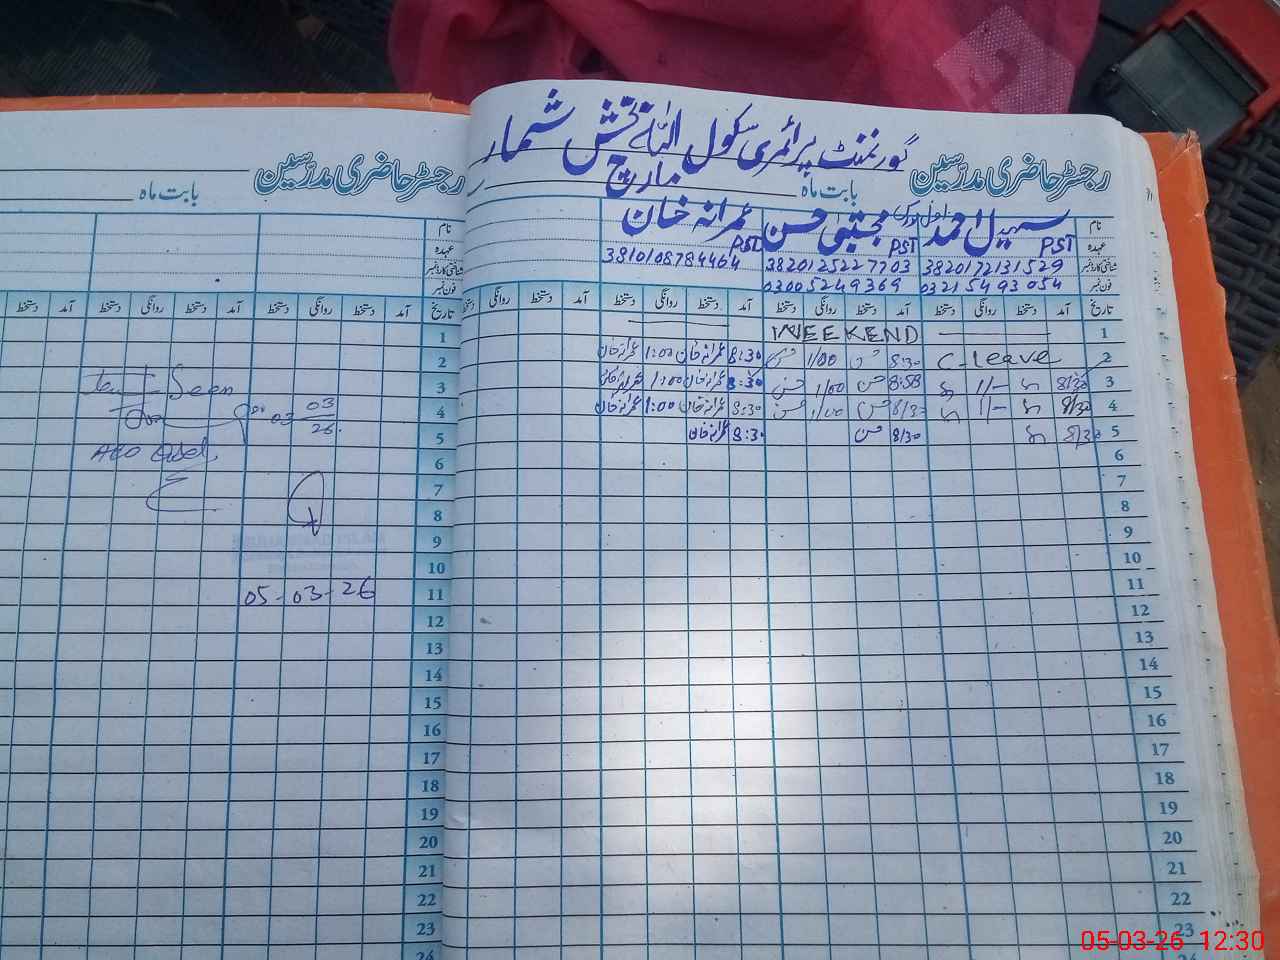 رجسٹر حاضری مدرسین
گورنمنٹ پرائمری سکول
شمار
بابت ماہ
مارچ
نام
سہیل احمد
مجتبیٰ حسن
عمرانہ خان
عہدہ
PST
PST
PST
شناختی کارڈ نمبر
3820172131529
3820125227703
3810108784464
فون نمبر
03215493054
03005249369
تاریخ
آمد دستخط روانگی دستخط آمد دستخط روانگی دستخط آمد دستخط روانگی دستخط آمد دستخط روانگی دستخط
1 WEEKEND
2 C-leave 8:30 حسن 1/00 8:30 عمرانہ خان 1:00 عمرانہ خان
3 8/30 1/- 8:58 حسن 1/00 حسن 8:30 عمرانہ خان 1:00 عمرانہ خان
4 8/30 1/- 8/30 حسن 1/00 حسن 8:30 عمرانہ خان 1:00 عمرانہ خان
5 8/30 8/30 حسن 8:30 عمرانہ خان
6
7
8
9
10
11
12
13
14
15
16
17
18
19
20
21
22
23
24
رجسٹر حاضری مدرسین
بابت ماہ
نام
عہدہ
شناختی کارڈ نمبر
فون نمبر
تاریخ
آمد دستخط روانگی دستخط آمد دستخط روانگی دستخط آمد دستخط
1
2
3 Seen
4 03 03
26
5
6
7
8
9
10
11 05-03-26
12
13
14
15
16
17
18
19
20
21
22
23
24
05-03-26 12:30